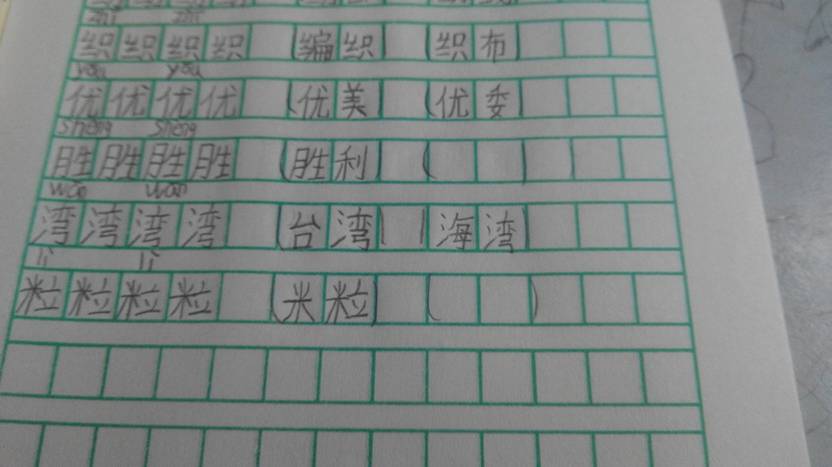 zhī zhī
织织织织 (编织 (织布
yōu yōu
优优优优 (优美 (优委
shèng shèng
胜胜胜胜 (胜利 (
wān wān
湾湾湾湾 (台湾) (海湾
lì lì
粒粒粒粒 (米粒) ( )